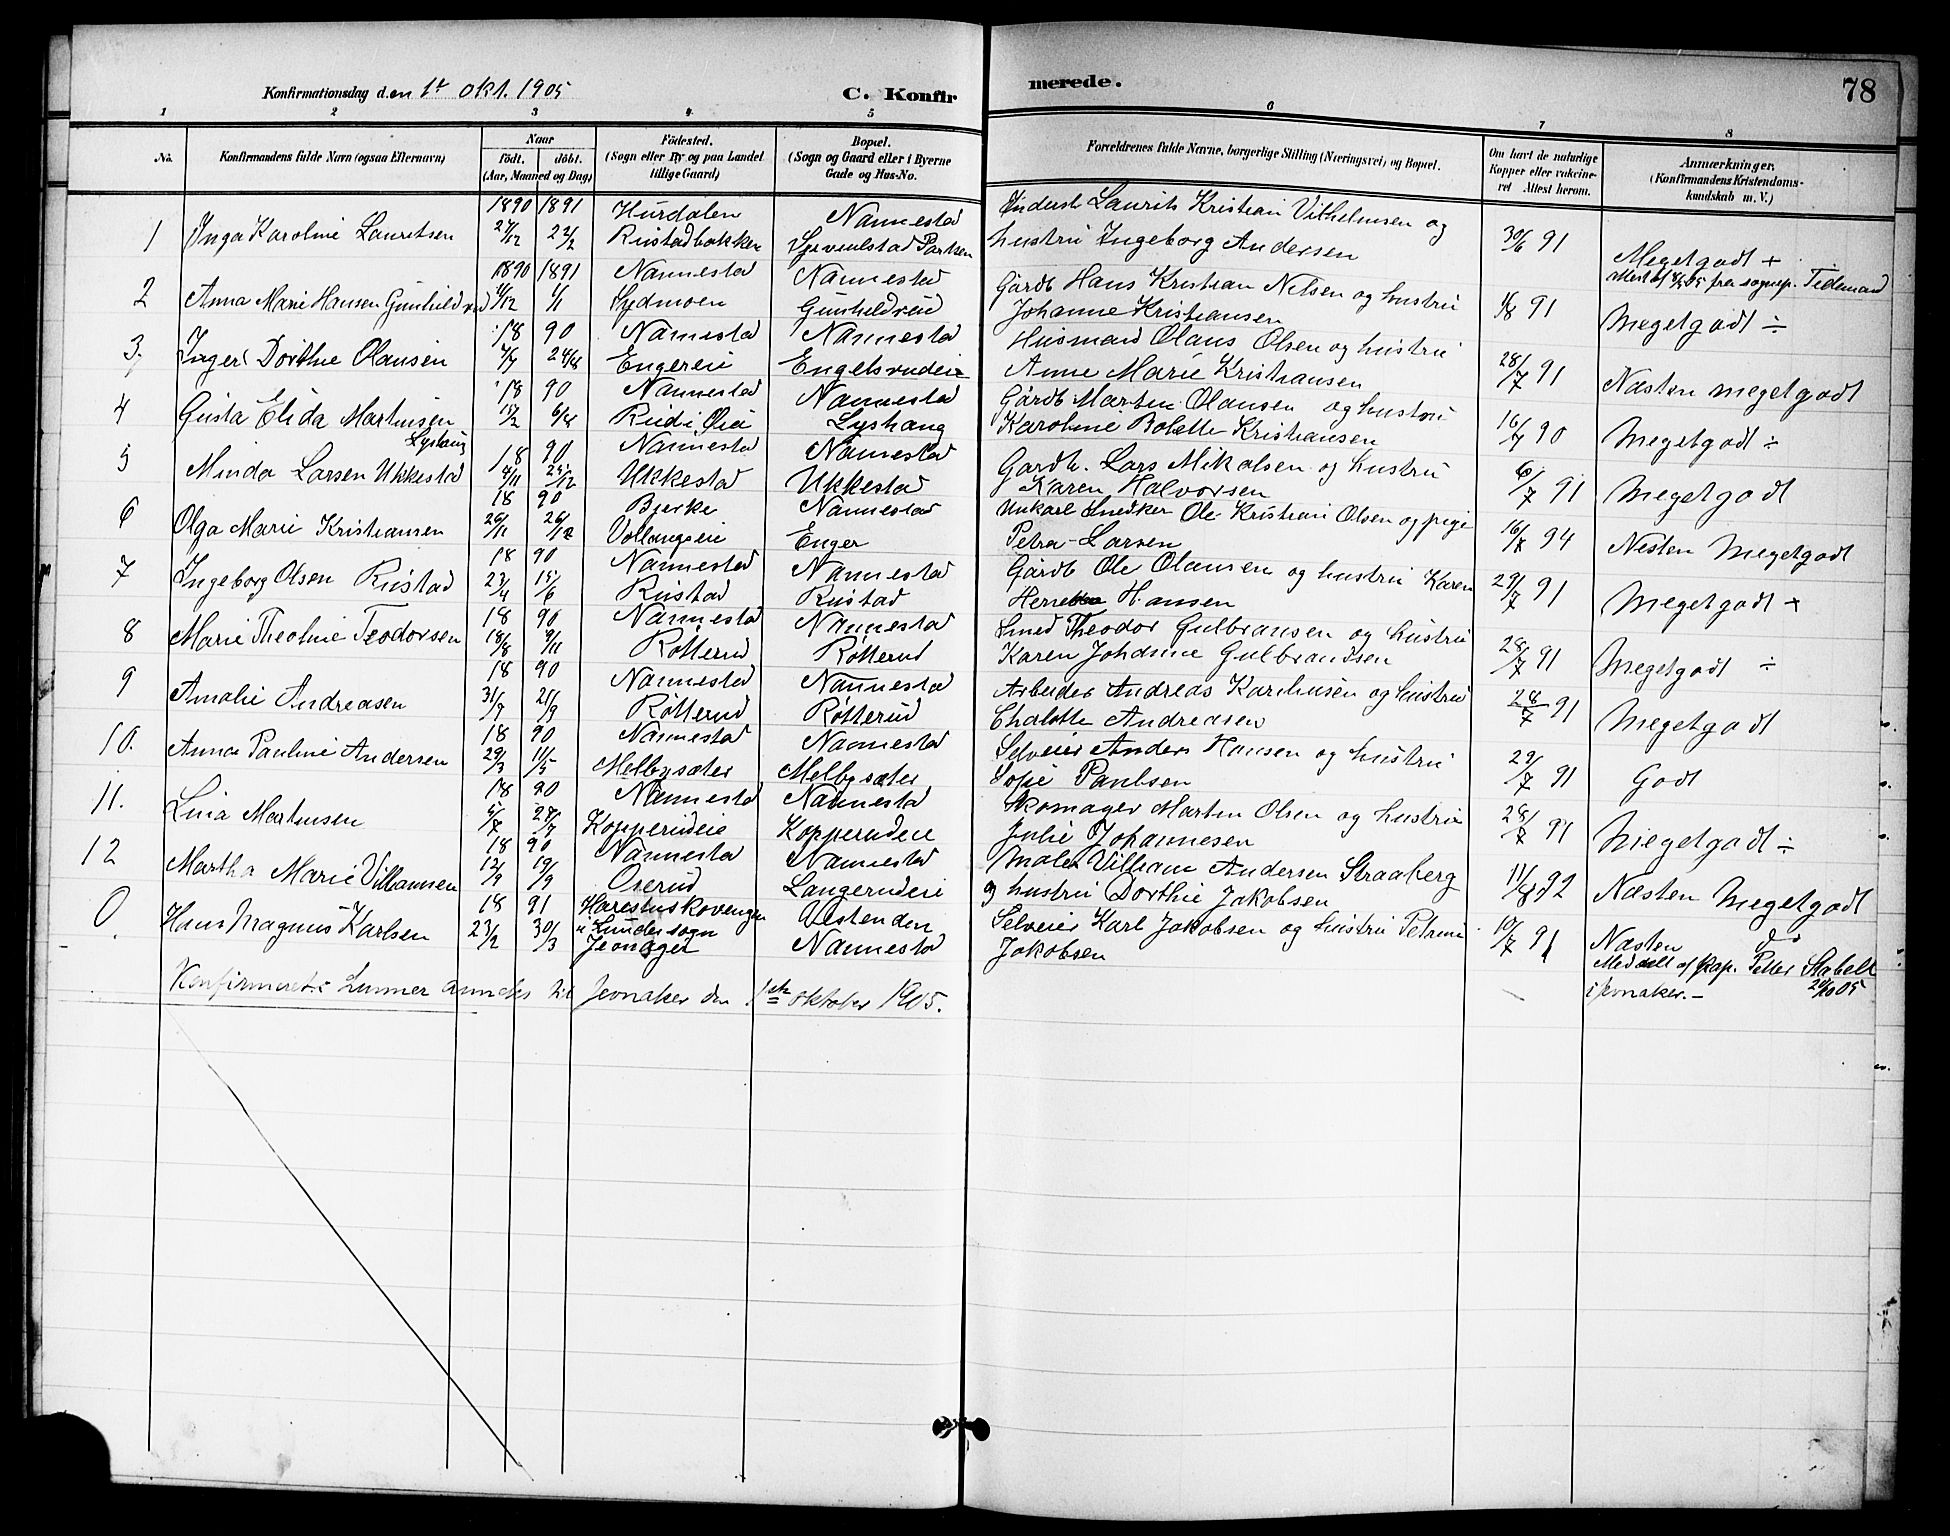 Konfirmationsdag den 1t okt. 1905
C. Konfirmerede.
78
1 2 3 4 5 6 7 8
No.
Konfirmandens fulde Navn (ogsaa Efternavn)
Naar
födt. döbt.
(Aar, Maaned og Dag)
Födested.
(Sogn eller By og paa Landet
tillige Gaard)
Bopæl.
(Sogn og Gaard eller i Byerne
Gade og Hus-No.
Forældrenes fulde Navne, borgerlige Stilling (Næringsvei) og Bopæl.
Om havt de naturlige
Kopper eller vakcine-
ret Attest herom.
Anmærkninger.
(Konfirmandens Kristendoms-
kundskab m. V.)
1890 1891 Hurdalen Nannestad Inderst Laurits Kristian Vilhelmsen og
1 Inga Karoline Lauritsen 27/12 22/2 Rustadbakken hustru Ingeborg Andersen 30/6 91 Megetgodt +
1890 1891 Nannestad Nannestad Gårdb Hans Kristian Nilsen og hustru fra sognep. Tidemand
2 Anna Marie Hansen Gunhildrud 11/12 1/1 Sydmoen Gunhildrud Johanne Kristiansen 91 Megetgodt ÷
18 90 Nannestad Nannestad Husmand Olaus Olsen og hustru
3. Inger Dorthe Olausen 7/7 24/8 Engereie Engelsrudeie Anne Marie Kristiansen 28/7 91 Næsten megetgodt
18 90 Nannestad Nannestad Gårdb Martin Olausen og hustru
4 Gusta Elida Martinsen Lyshaug 6/4 Lyshaug Karoline Bolette Kristiansen 16/7 90 Megetgodt ÷
18 90 Nannestad Nannestad Gardb. Lars Mikalsen og hustru
5 Minda Larsen Ukkestad 4/11 25/12 Ukkestad Ukkestad Karen Halvorsen 6/7 91 Megetgodt
18 90 Bjerke Nannestad Unkarl Snedker Ole Kristian Olsen og pige
6 Olga Marie Kristiansen 20/11 26/12 Vollangseie Enger Petra Larsen 16/8 94 Nesten Megetgodt
18 90 Nannestad Nannestad Gårdb Ole Olausen og hustru Karen
7 Ingeborg Olsen Rustad 23/4 15/6 Rustad Rustad Hansen 29/7 91 Megetgodt +
18 90 Nannestad Nannestad Smed Theodor Gulbransen og hustru
8 Marie Theoline Teodorsen 18/8 9/11 Røtterud Røtterud Karen Johanne Gulbrandsen 28/7 91 Megetgodt ÷
18 90 Nannestad Nannestad Arbeider Andreas Karelusen og hustru
9 Amalie Andreasen 31/7 21/9 Røtterud Røtterud Chalotte Andreasen 28/7 91 Megetgodt
18 90 Nannestad Nannestad Selveier Anders Hansen og hustru
10. Anna Pauline Andersen 29/3 11/5 Melbysæter Melbysæter Sofie Paulsen 29/7 91 Godt
18 90 Nannestad Nannestad Skomager Martin Olsen og hustru
11. Lina Martinsen 5/7 27/7 Kopperudeie Kopperudeie Julie Johannesen 28/7 91 Megetgodt ÷
18 90 Nannestad Nannestad Maler Villiam Andersen Straaberg
12 Martha Marie Villiamsen 12/9 19/9 Oserud Langerudeie og hustru Dorthie Jakobsen 11/8 92 Næsten Megetgodt
18 91 Harestuskovengen Alstenden Selveier Karl Jakobsen og hustru Petrine
0. Hans Magnus Karlsen 23/2 30/3 i Lunder sogn Jevnager Nannestad Jakobsen 10/7 91 Næsten do
Meddelt af kap. Petter Stabell
Konfirmeret i Lunner anneks til Jevnaker den 1ste oktober 1905. i Jevnaker. – 20/10 05